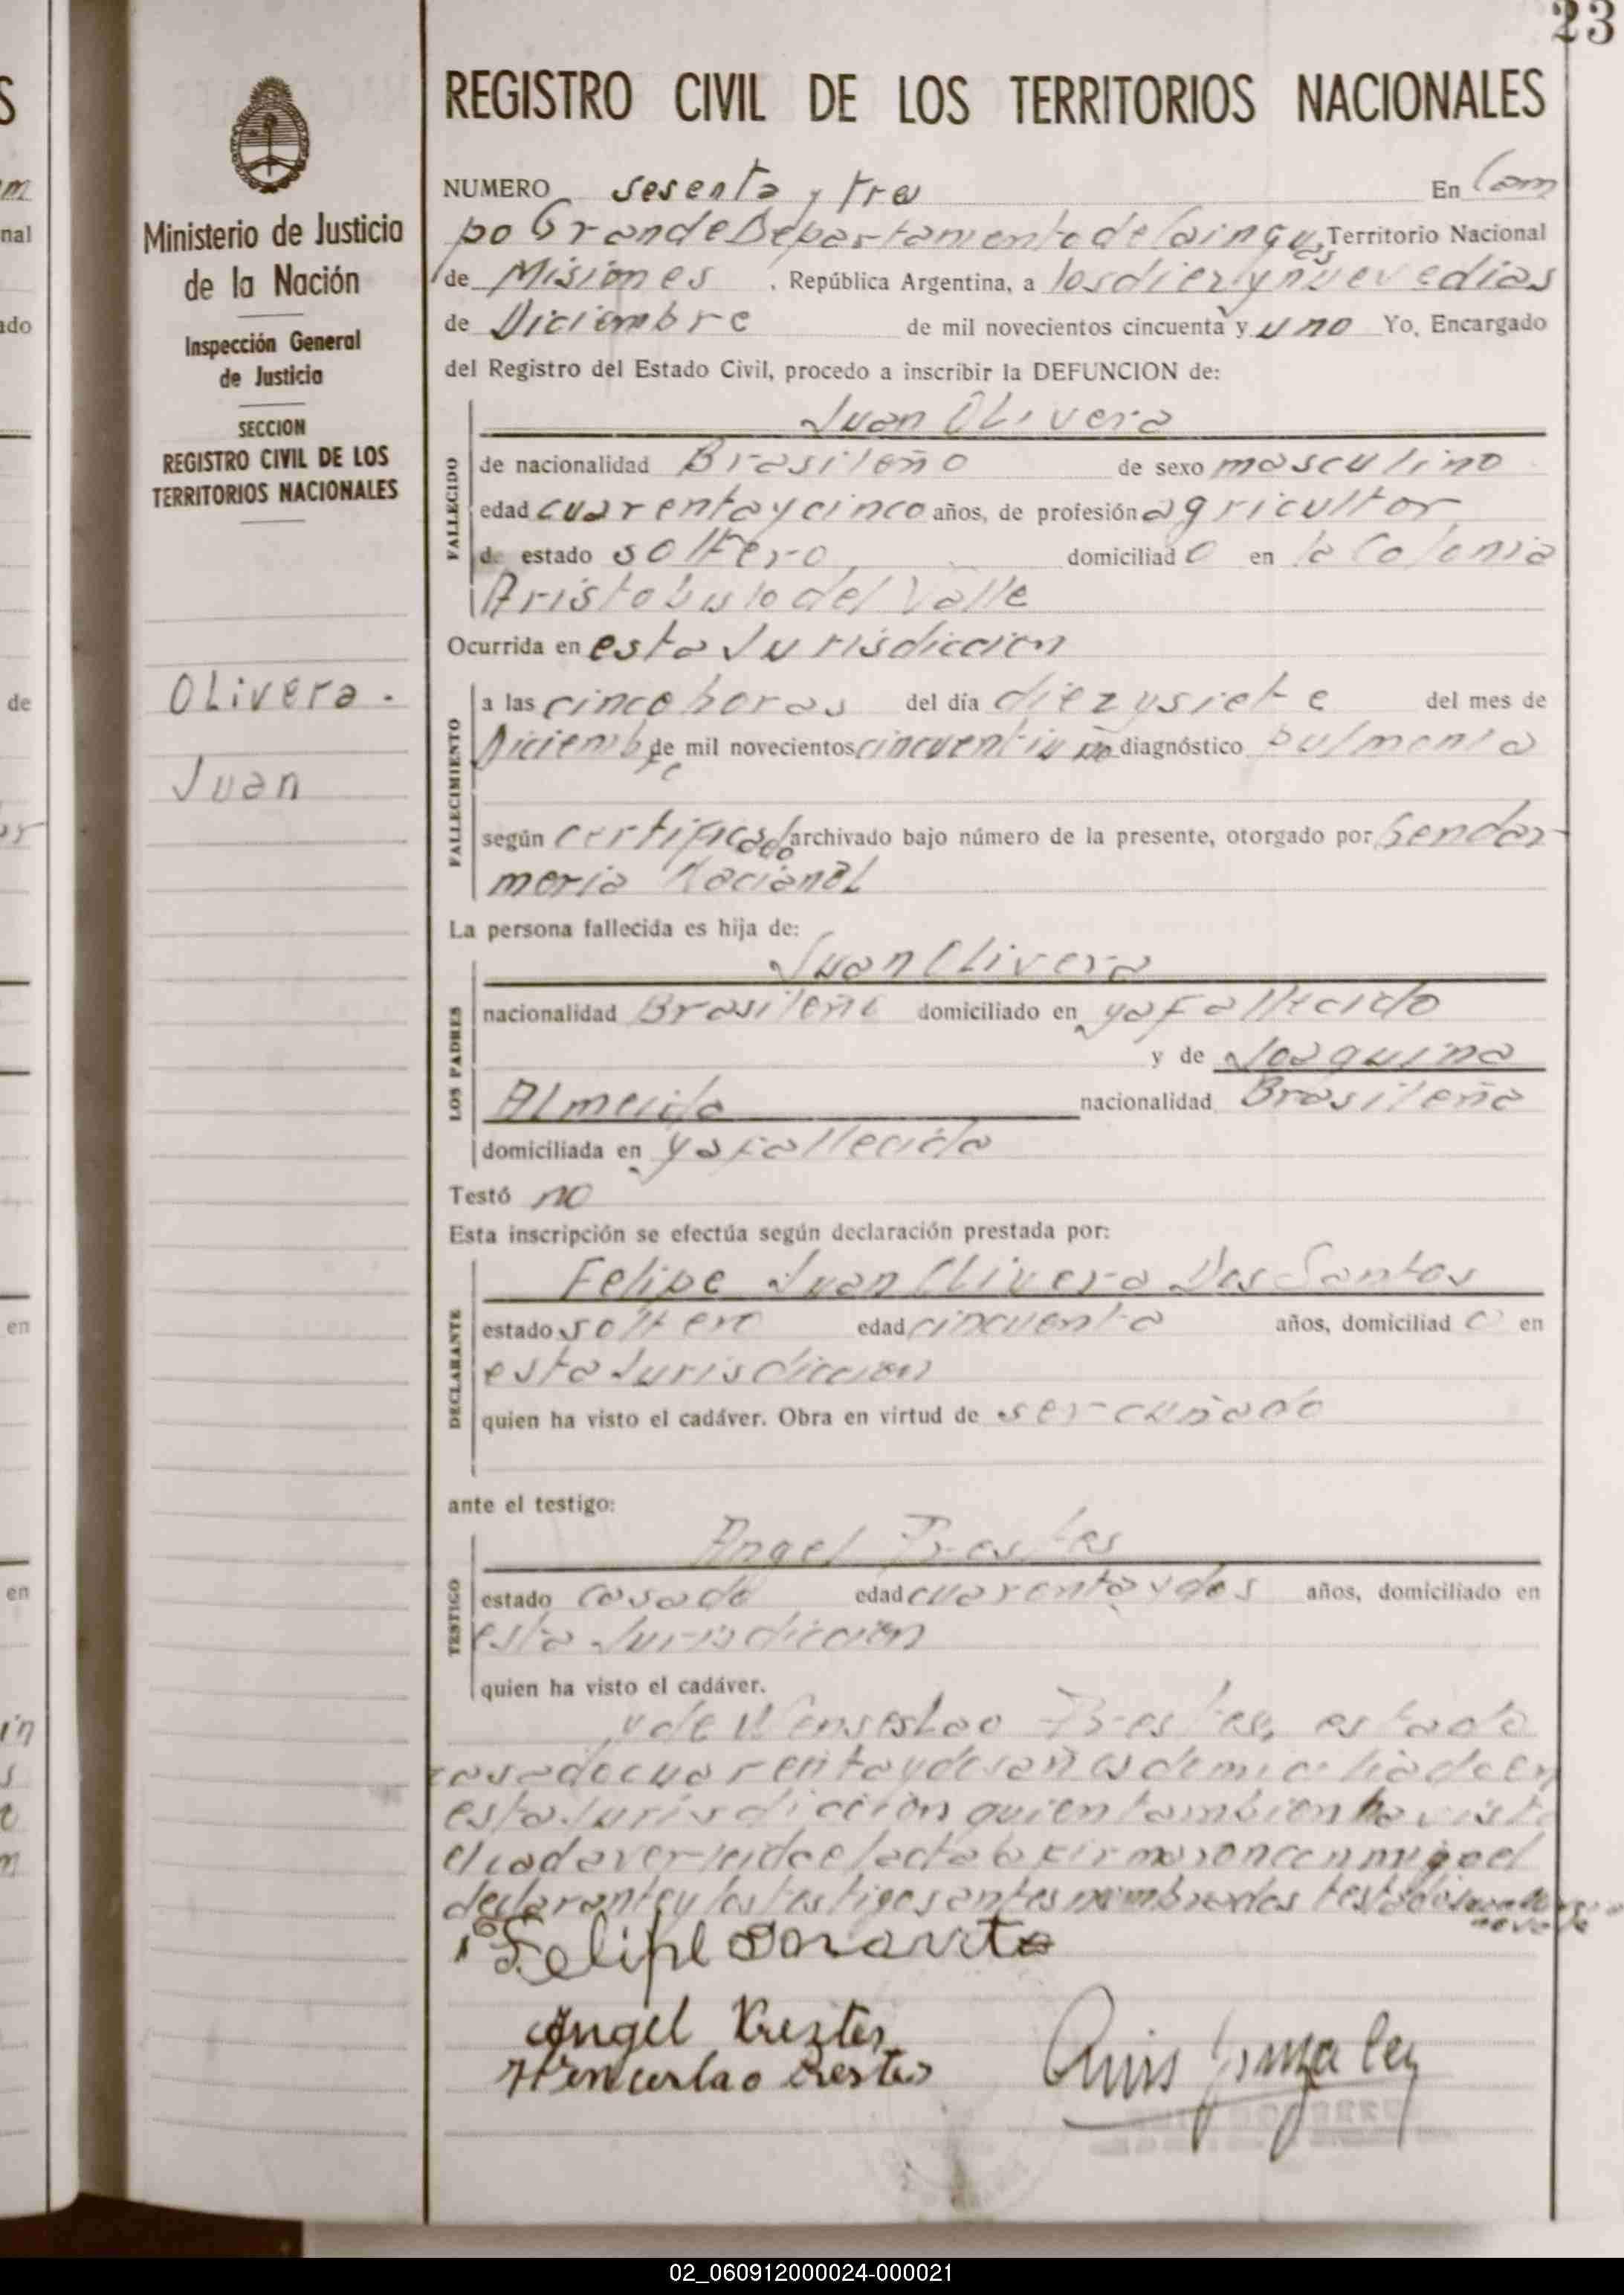 23
REGISTRO CIVIL DE LOS TERRITORIOS NACIONALES
Ministerio de Justicia
de la Nación
Inspección General
de Justicia
SECCION
REGISTRO CIVIL DE LOS
TERRITORIOS NACIONALES
OLivera.
Juan
NUMERO sesenta y tres En Cam
po Grande Departamento de Cainguas Territorio Nacional
de Misiones, República Argentina, a los diez y nueve dias
de Diciembre de mil novecientos cincuenta y uno Yo, Encargado
del Registro del Estado Civil, procedo a inscribir la DEFUNCION de:
Juan OLivera
FALLECIDO
de nacionalidad Brasileño de sexo masculino
edad cuarenta y cinco años, de profesión agricultor
de estado soltero domiciliado en la Colonia
Aristobulo del Valle
Ocurrida en esta Jurisdiccion
FALLECIMIENTO
a las cinco horas del día diez y siete del mes de
Diciembre de mil novecientos cincuentiuno diagnóstico pulmonia
según certificado archivado bajo número de la presente, otorgado por Gendar
meria Nacional
La persona fallecida es hija de:
Juan Olivera
LOS PADRES
nacionalidad Brasileño domiciliado en ya fallecido
y de Joaquina
Almeida nacionalidad Brasileña
domiciliada en ya fallecida
Testó no
Esta inscripción se efectúa según declaración prestada por:
Felipe Juan Olivera Dos Santos
DECLARANTE
estado soltero edad cincuenta años, domiciliado en
esta Jurisdiccion
quien ha visto el cadáver. Obra en virtud de ser cuñado
ante el testigo:
Angel Prestes
TESTIGO
estado casado edad cuarenta y dos años, domiciliado en
esta Jurisdiccion
quien ha visto el cadáver.
y de Wenseslao Prestes, estado
casado cuarenta y dos años domiciliado en
esta Jurisdiccion quien tambien ha visto
el cadaver leida el acta la firmaron conmigo el
declarante y los testigos antes nombrados
Felipe
Angel Prestes
Wenceslao Prestes
Luis Gonzalez
02_060912000024-000021